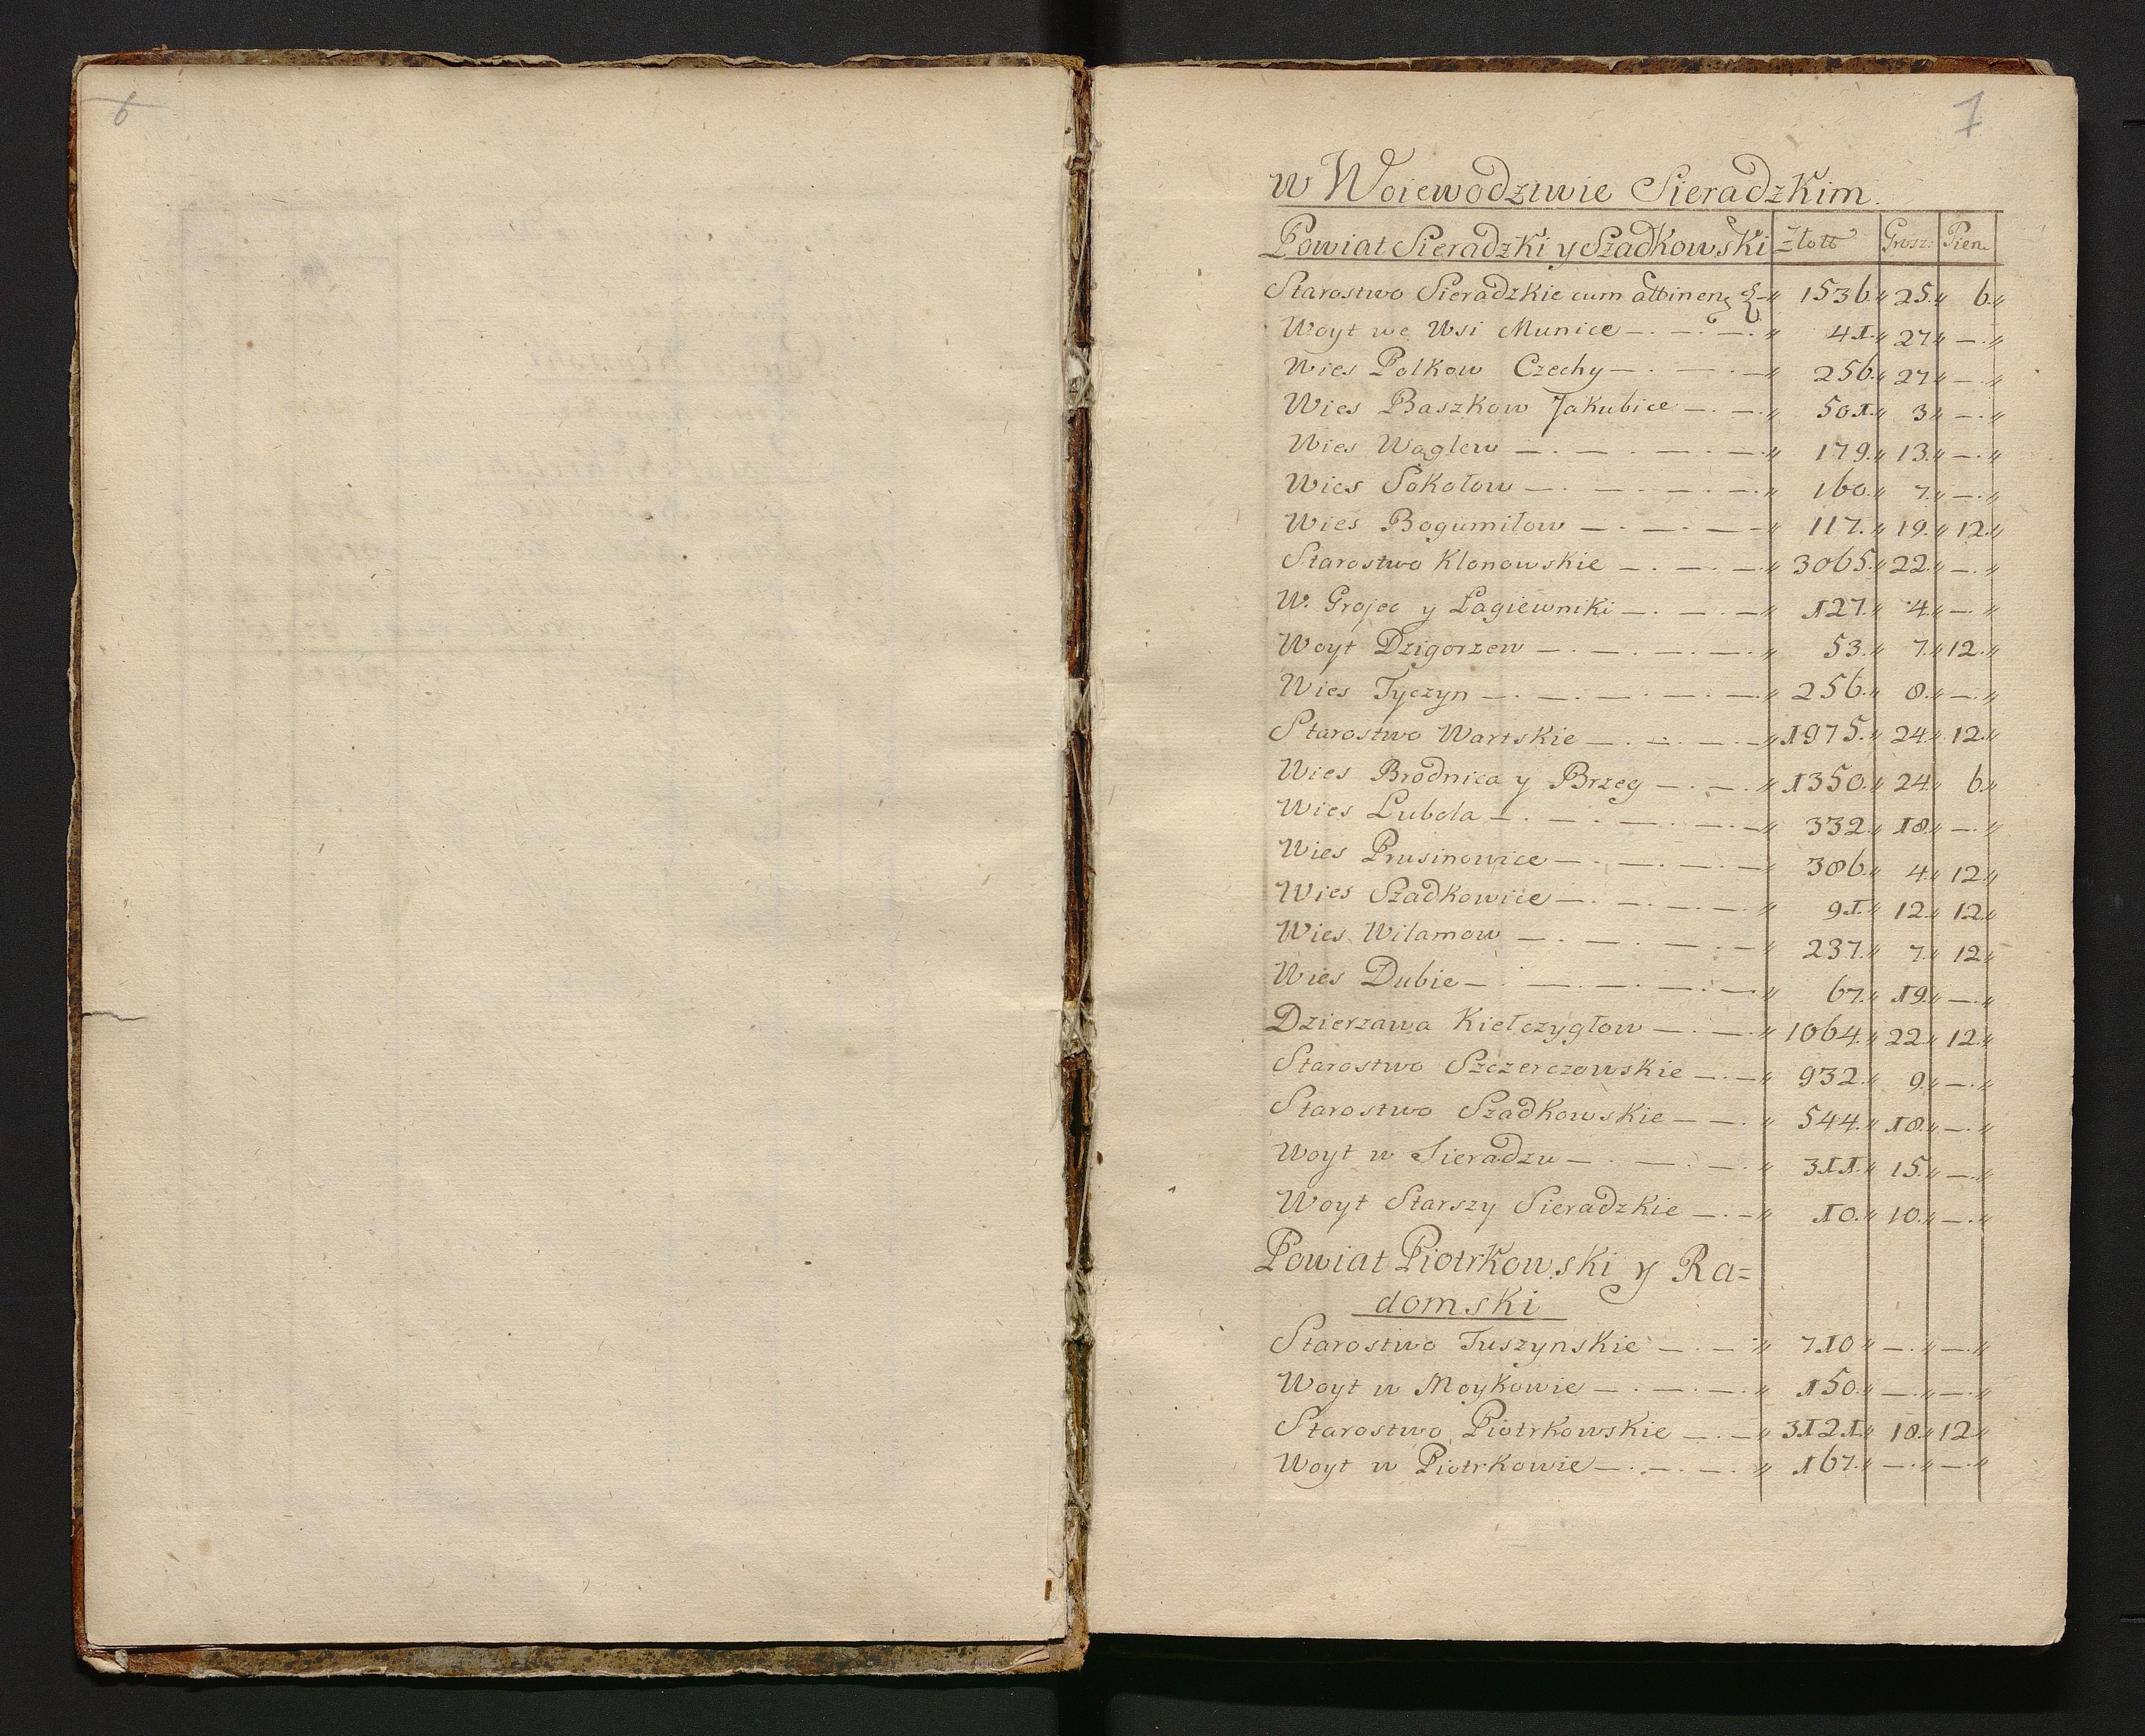 6
7
w Woiewodztwie Sieradzkim.
Powiat Sieradzki y Szadkowski Złott Grosz: Pien.
Starostwo Sieradzkie cum attinen „ 1536.„ 25.„ 6.„
Woyt we Wsi Munice — . — . — . „ 41.„ 27„ — . „
Wies Polkow Czechy — . — . — „ 256.„ 27„ — . „
Wies Baszkow Jakubice — . — . „ 501.„ 3„ — . „
Wies Wąglew — . — . — . — . „ 179.„ 13.„ — . „
Wies Sokołow — . — . — . — . „ 160.„ 7.„ — . „
Wies Bogumiłow — . — . — — „ 117.„ 19.„ 12.„
Starostwo Klonowskie — . — . — „ 3065.„ 22.„ — . „
W. Grojec y Łagiewniki — . — . — „ 127.„ 4.„ — . „
Woyt Dzigorzew — . — . — . — . „ 53.„ 7.„ 12.„
Wies Tyczyn — . — . — . — . — . „ 256.„ 8.„ — . „
Starostwo Wartskie — . — . — . — „ 1975.„ 24.„ 12.„
Wies Brodnica y Brzeg — . — . „ 1350.„ 24.„ 6.„
Wies Lubola — . — . — . — . — „ 332.„ 18.„ — . „
Wies Prusinowice — . — . — . — „ 386.„ 4.„ 12.„
Wies Szadkowice — . — . — . — . „ 91.„ 12.„ 12.„
Wies Wilamow — . — . — . — „ 237.„ 7.„ 12.„
Wies Dubie — . — . — . — . — „ 67.„ 19.„ — . „
Dzierzawa Kiełczygłow — . — . „ 1064.„ 22.„ 12.„
Starostwo Szczerczowskie — . — „ 932.„ 9.„ — . „
Starostwo Szadkowskie — — . „ 544.„ 18.„ — . „
Woyt w Sieradzu — . — . — . „ 311.„ 15.„ — . „
Woyt Starszy Sieradzkie — . — „ 10.„ 10.„ — . „
Powiat Piotrkowski y Ra=
domski
Starostwo Tuszynskie — . — „ 710„ — . „ — . „
Woyt w Moykowie — . — . — . „ 150.„ — . „ — . „
Starostwo Piotrkowskie — . — „ 3121.„ 18.„ 12„
Woyt w Piotrkowie — . — . — . „ 167.„ — . „ — . „